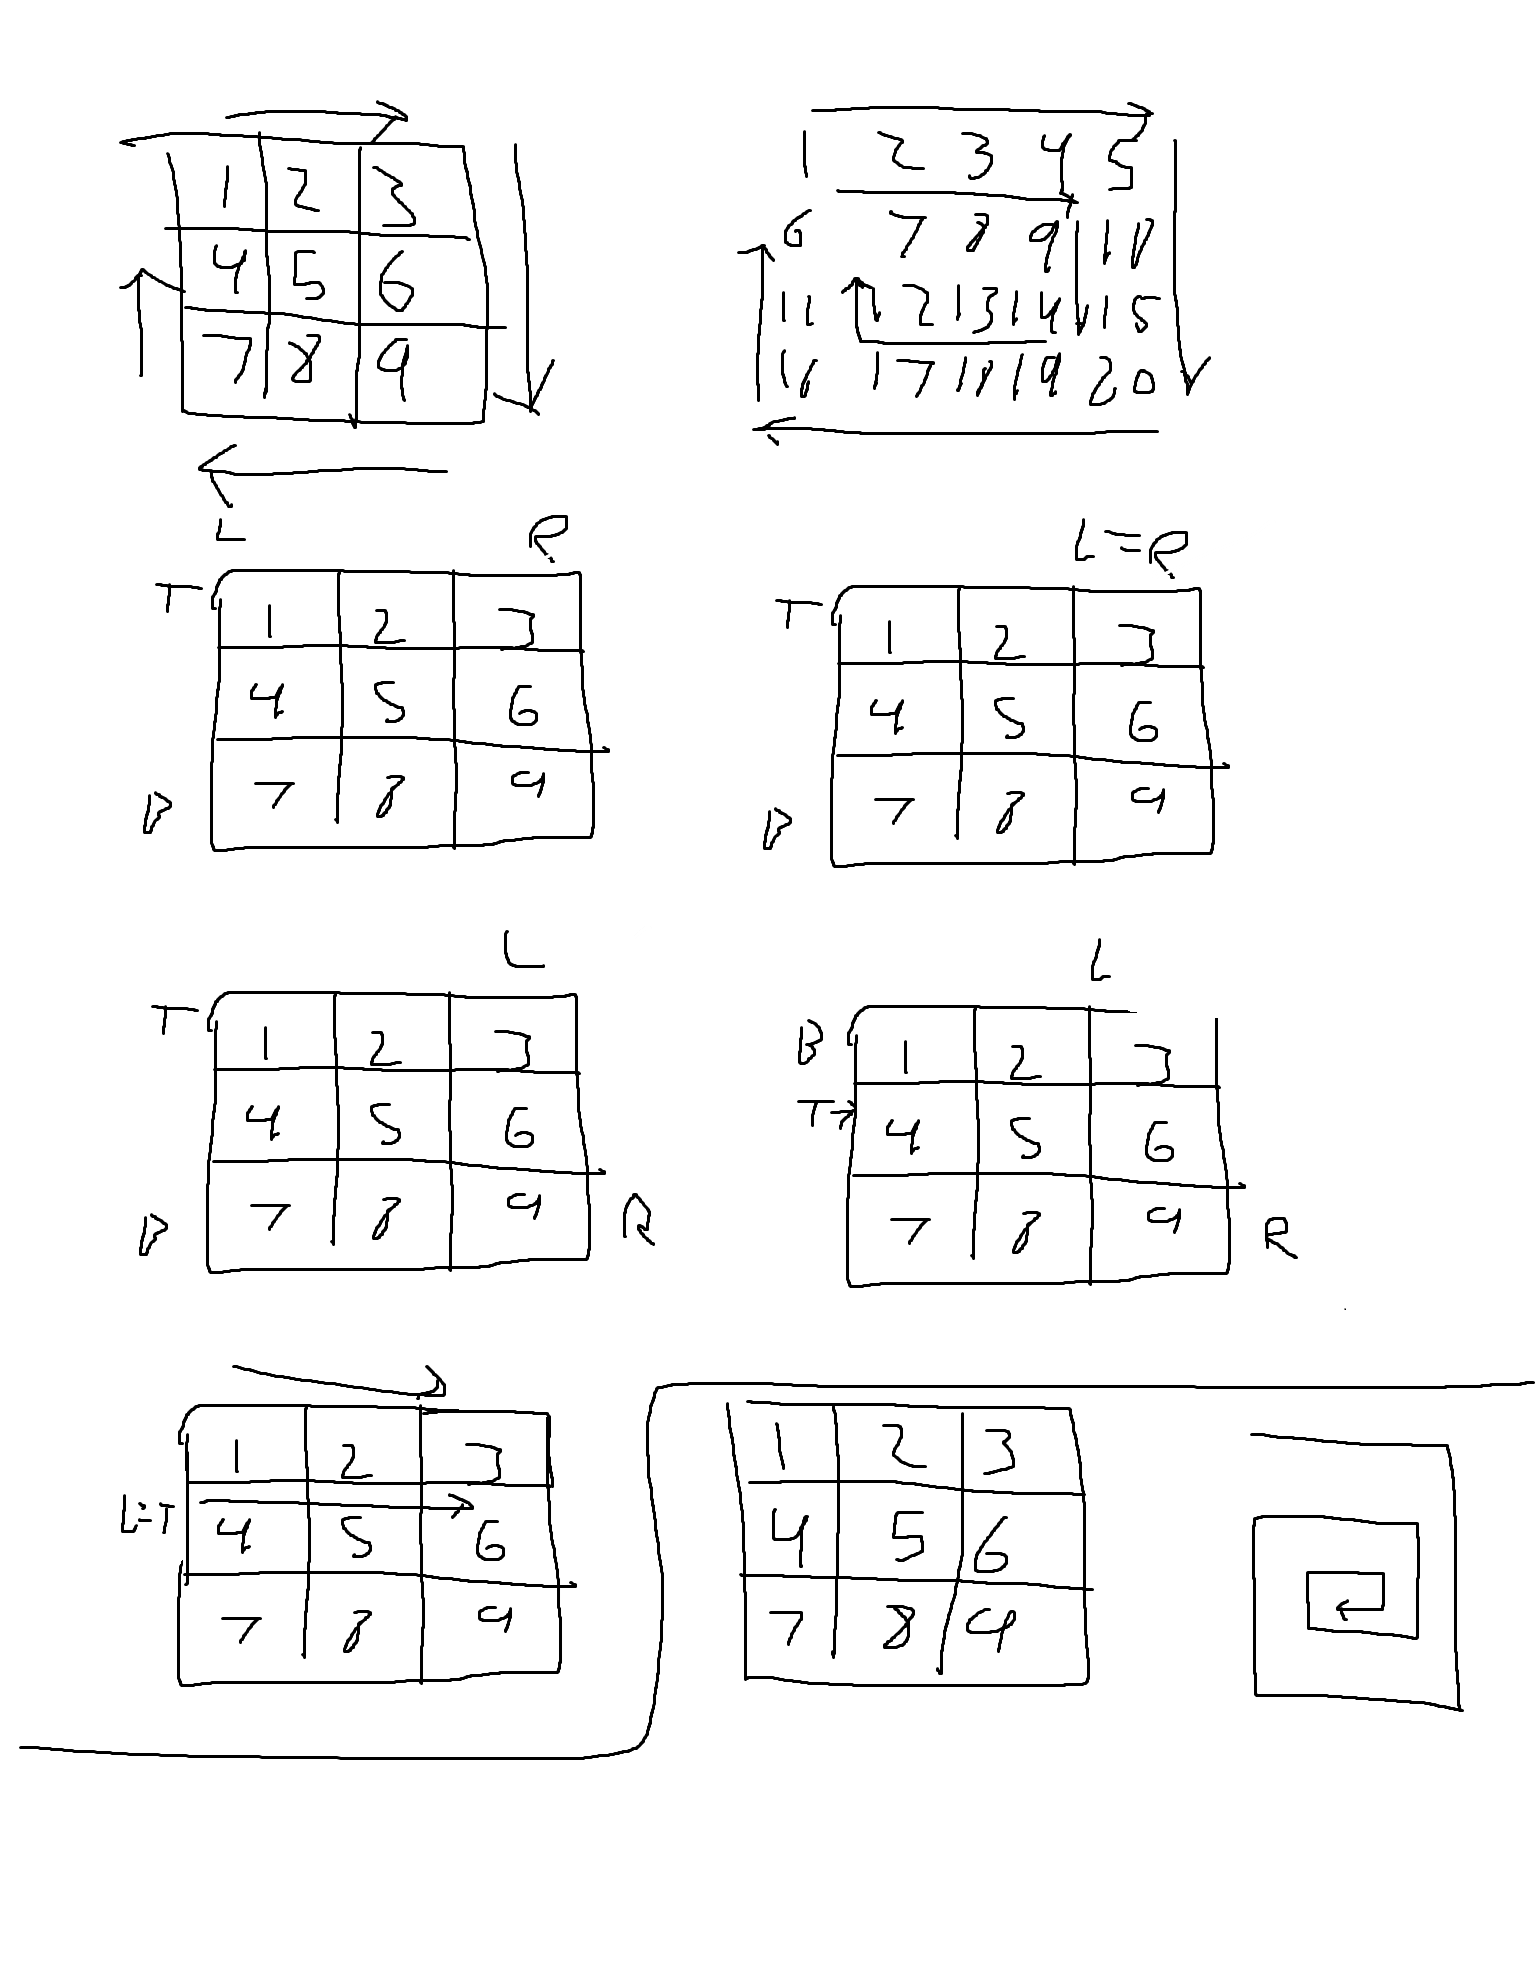 1 2 3
4 5 6
7 8 9
1 2 3 4 5
6 7 8 9 10
11 12 13 14 15
16 17 18 19 20
L R
T 1 2 3
4 5 6
B 7 8 9
L=R
T 1 2 3
4 5 6
B 7 8 9
L
T 1 2 3
4 5 6
B 7 8 9 R
L
B 1 2 3
T 4 5 6
7 8 9 R
1 2 3
L=T 4 5 6
7 8 9
1 2 3
4 5 6
7 8 9